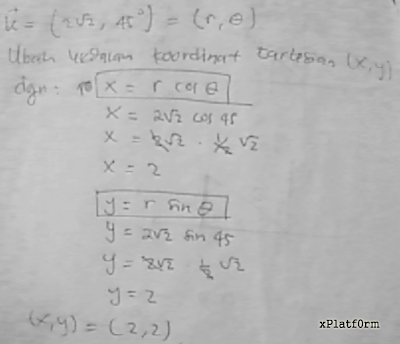 u⃗ = (2√2, 45°) = (r, θ)
Ubah kedalam koordinat cartesian (x,y)
dgn: x = r cos θ
x = 2√2 cos 45
x = 2√2 . 1/2 √2
x = 2
y = r sin θ
y = 2√2 sin 45
y = 2√2 1/2 √2
y = 2
(x,y) = (2,2)
xPlatf0rm